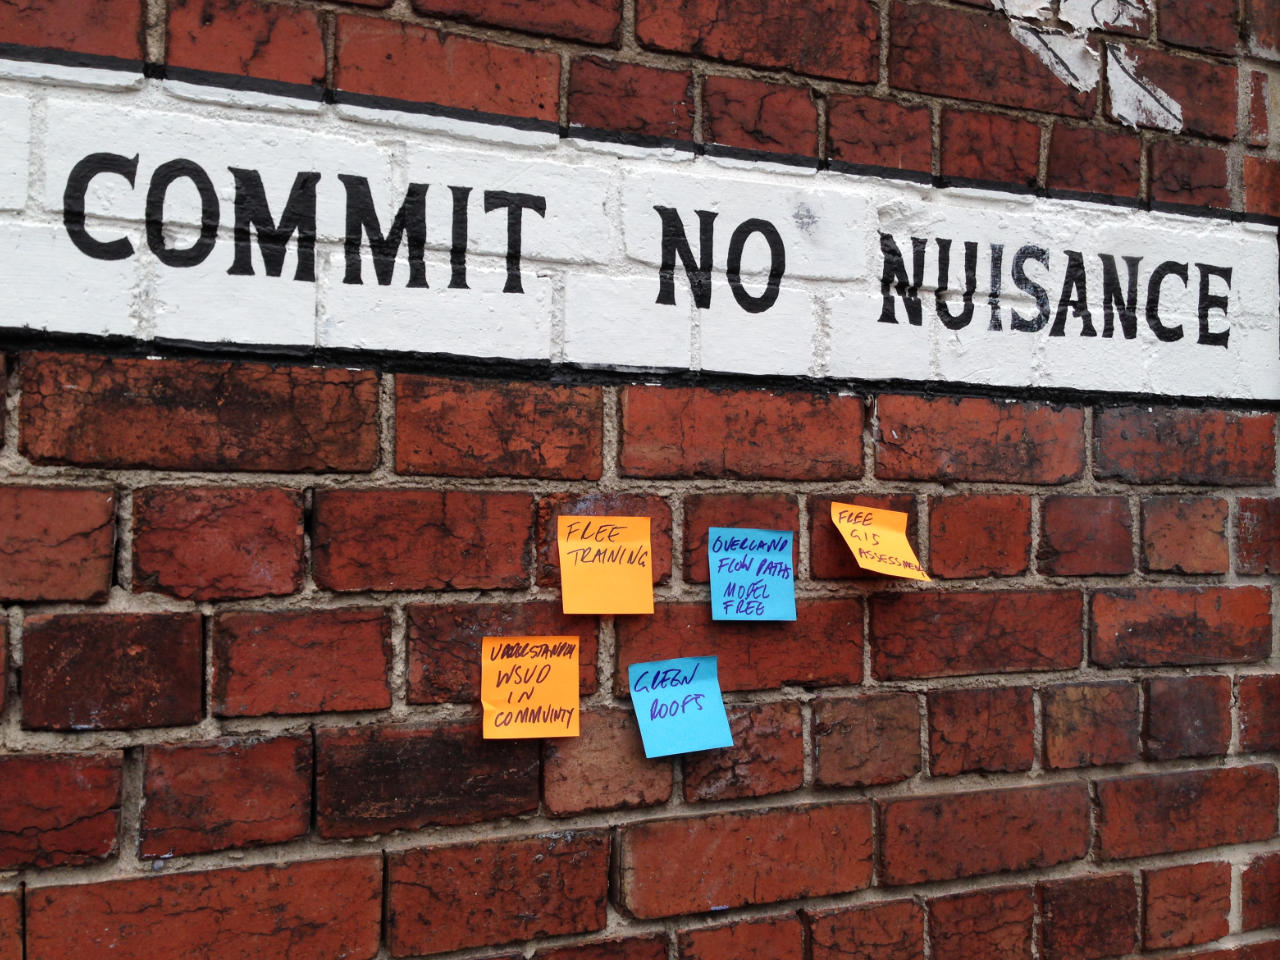 COMMIT NO NUISANCE
FREE
TRAINING
OVERLAND
FLOW PATHS
MODEL
FREE
FREE
GIS
ASSESSMEN
WSUD
IN
COMMUNITY
GREEN
ROOFS